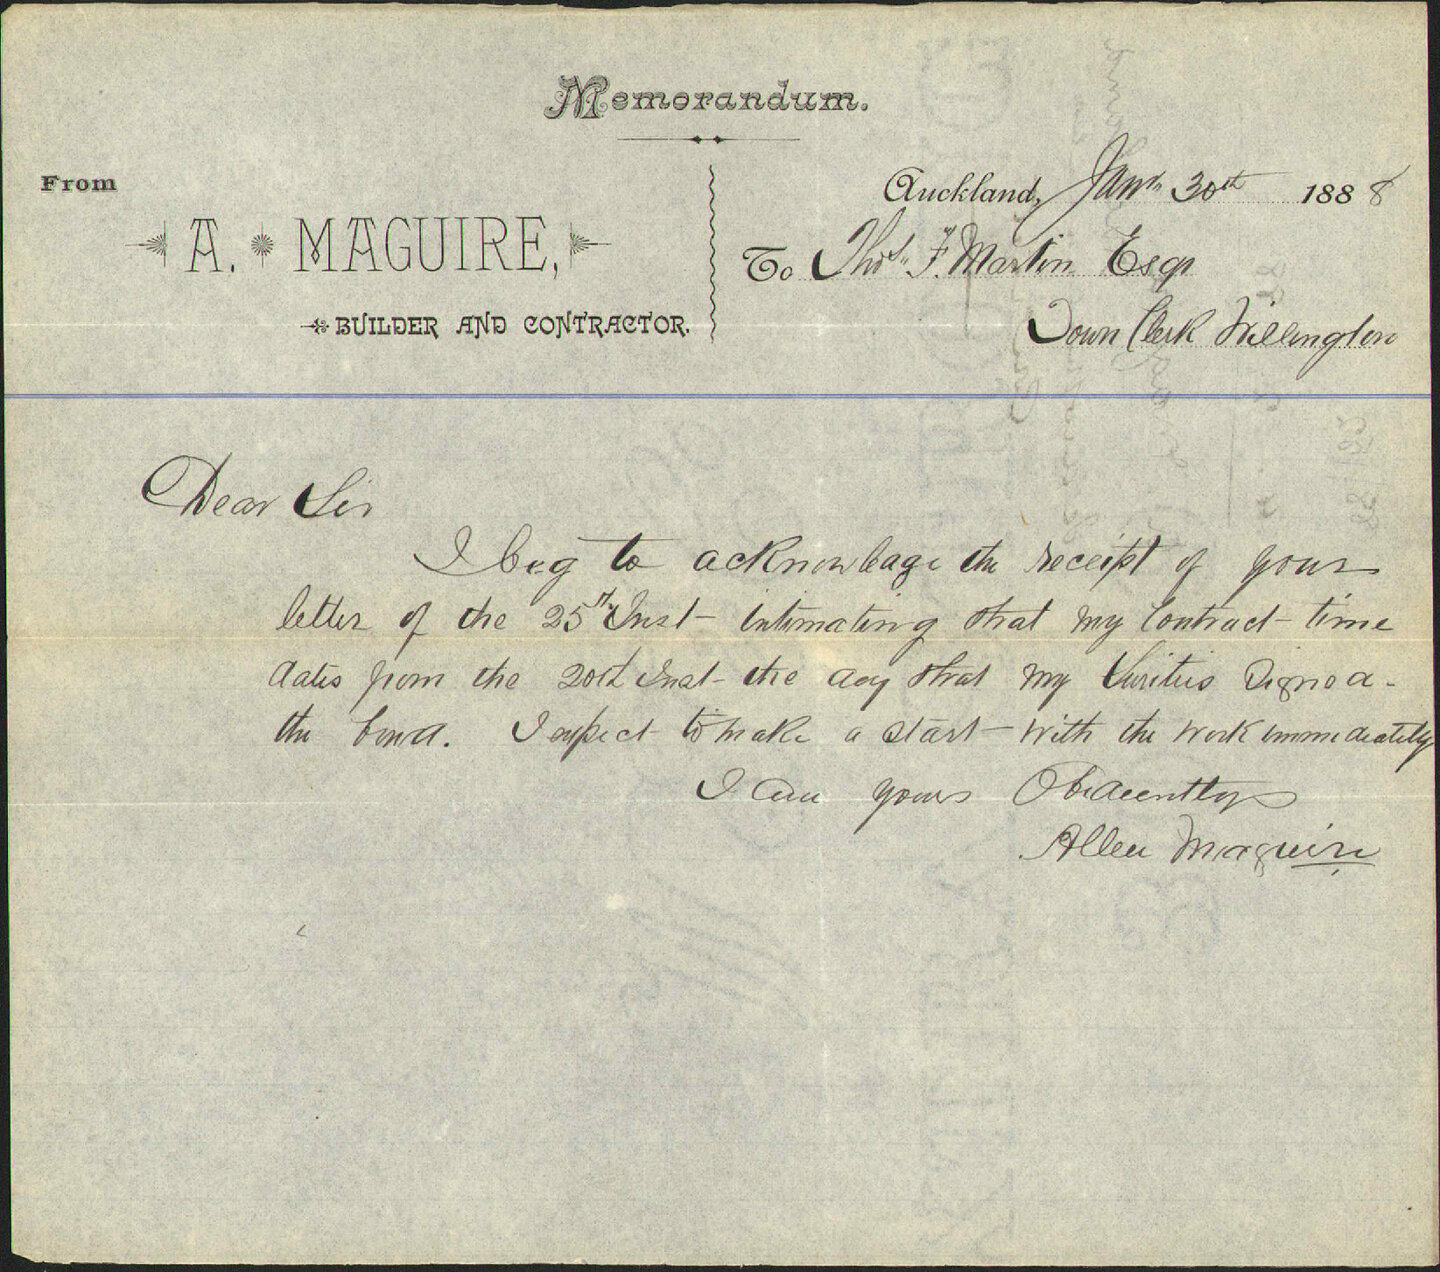 Memorandum.
From
A. MAGUIRE,
BUILDER AND CONTRACTOR.
Auckland, Jany 30th 1888
To Thos. F. Martin Esqr
Town Clerk Wellington
Dear Sir
I beg to acknowledge the receipt of your
letter of the 25th Inst intimating that my Contract time
dates from the 20th Inst the day that my Sureties signed
the bond. I expect to make a start with the work immediately
I am yours Obediently
Allen Maguire